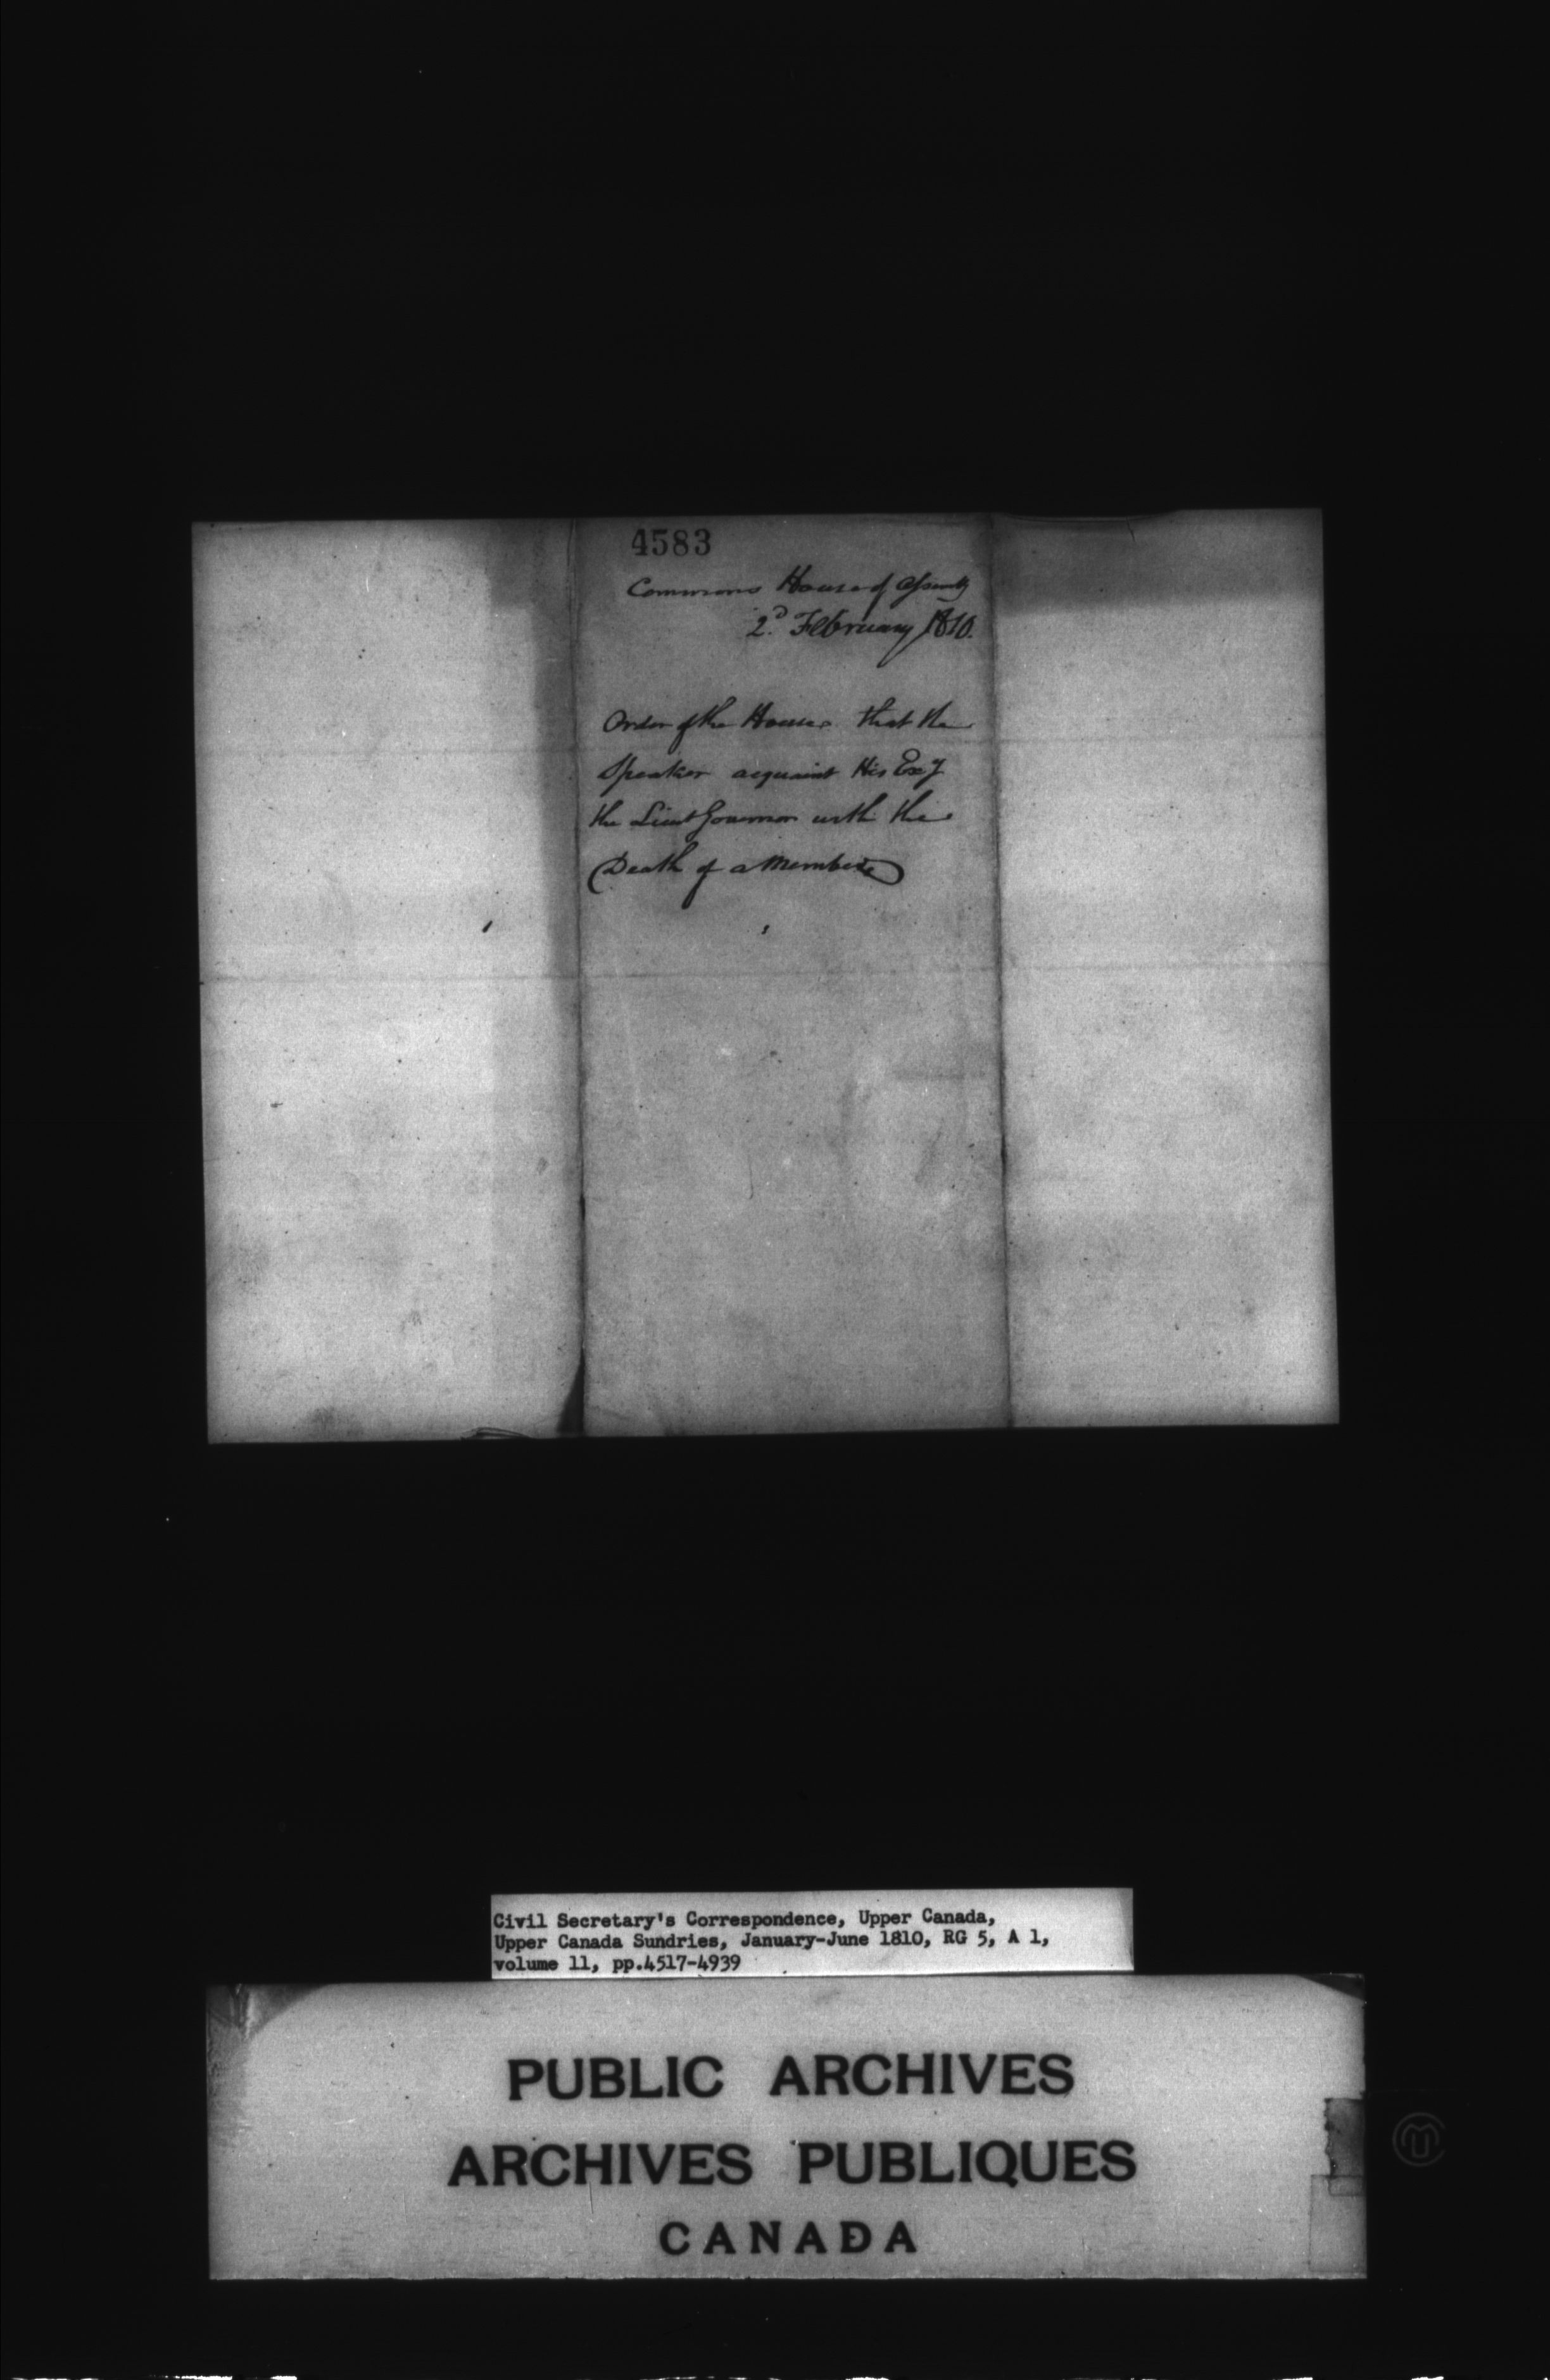 4583
Commons House of Assembly
2d. February 1810.
Order of the House that the
Speaker acquaint His Exy
the Lieut Governor with the
Death of a Member
Civil Secretary's Correspondence, Upper Canada,
Upper Canada Sundries, January-June 1810, RG 5, A 1,
volume 11, pp.4517-4939
PUBLIC ARCHIVES
ARCHIVES PUBLIQUES
CANADA